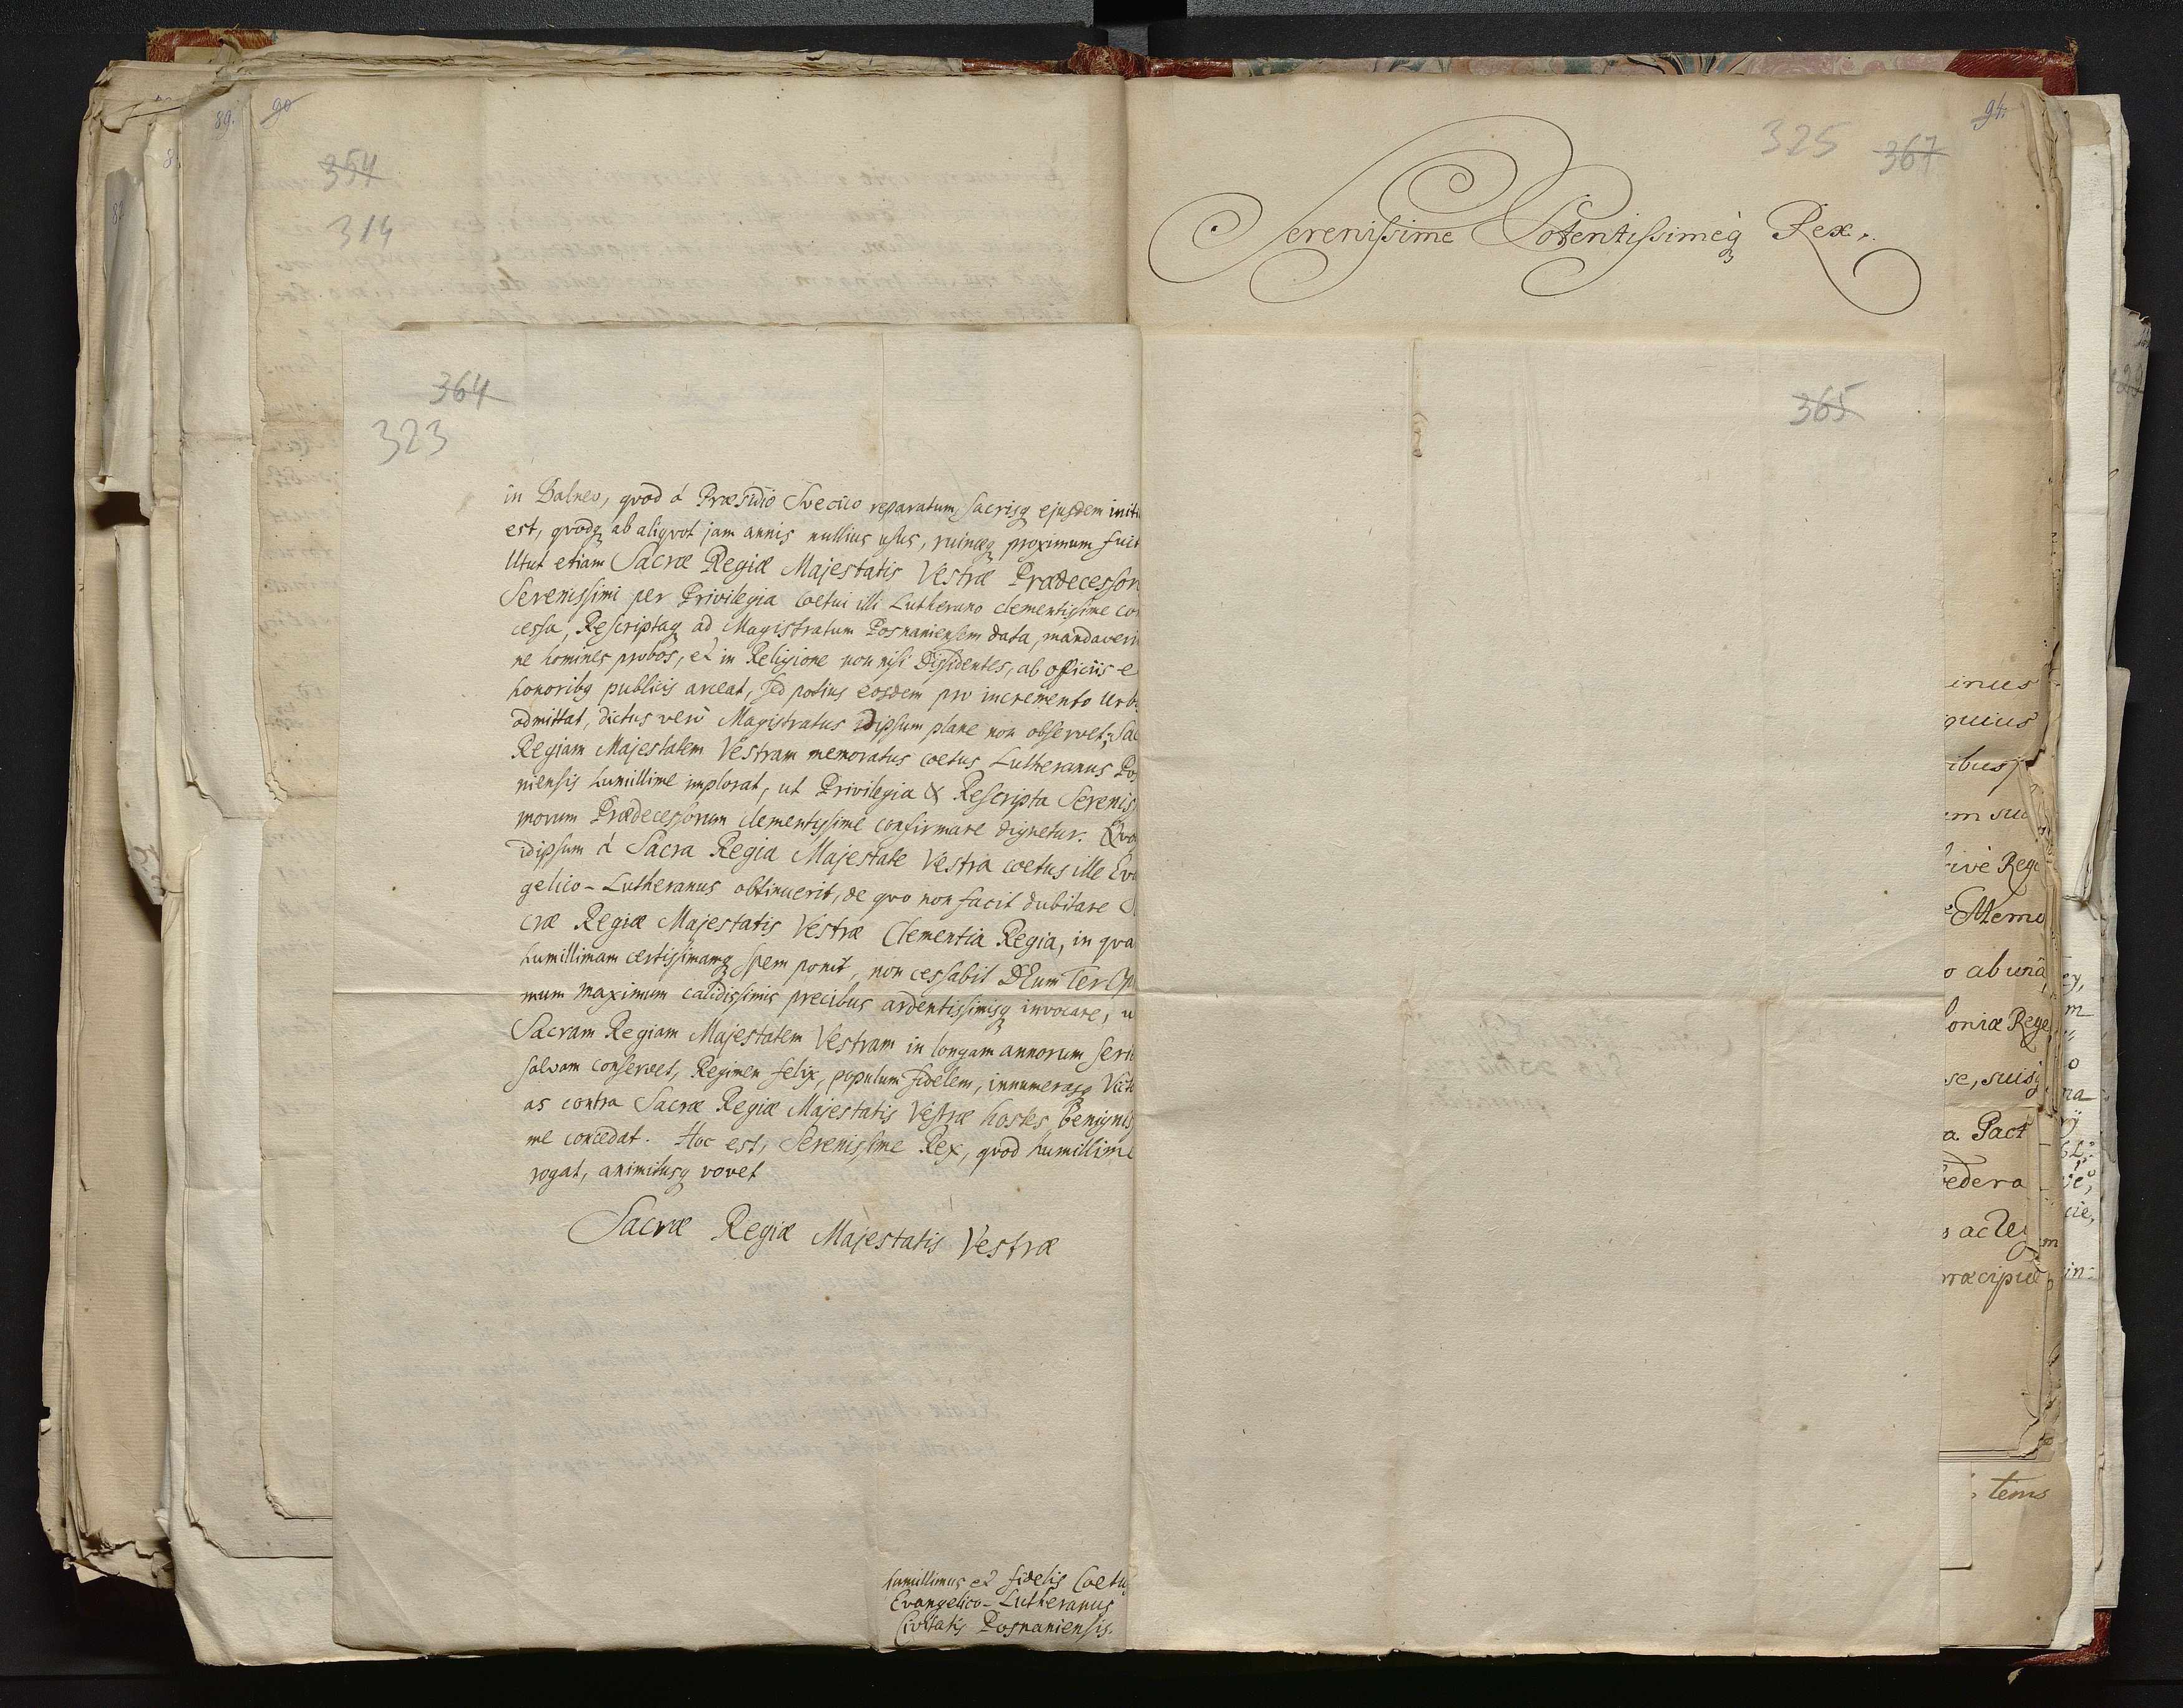 89.
90
354
314
325
367
94.
Serenissime Potentissimeq Rex.
364
323
365
in Balneo, qvod á Præsidio Svecico reparatum, sacrisq ejusdem initi
est, qvodq ab aliqvot jam annis nullius usus, ruinæq proximum fuit
Utut etiam Sacræ Regiæ Majestatis Vestræ Prædecessor
Serenissimi per Privilegia Coetui illi Lutherano clementissime co
cessa, Rescriptaq ad Magistratum Posnaniensem data, mandaveri
ne homines probos, et in Religione non nisi Dissidentes, ab officiis e
honoribq publicis arceat, sed potius eosdem pro incremento Urb
admittat, dictus verò Magistratus idipsum plane non observet; Sac
Regiam Majestatem Vestram memoratus coetus Lutheranus Pos
niensis humillime implorat, ut Privilegia & Rescripta Serenis
morum Prædecessorum clementissime confirmare dignetur. Qvo
idipsum á Sacra Regia Majestate Vestra coetus ille Ev
gelico-Lutheranus obtinuerit, de qvo non facit dubitare S
cræ Regiæ Majestatis Vestræ Clementia Regia, in qva
humillimam certissimamq spem ponit, non cessabit DEum Ter Op
mum Maximum calidissimis precibus ardentissimisq invocare, u
Sacram Regiam Majestatem Vestram in longam annorum seri
salvam conservet, Regimen felix, populum fidelem, innumerasq Victo
as contra Sacræ Regiæ Majestatis Vestræ hostes benignis
me concedat. Hoc est, Serenissime Rex, qvod humillime
rogat, animitusq vovet
Sacræ Regiæ Majestatis Vestræ
humillimus et fidelis Coetus
Evangelico-Lutheranus
Civitatis Posnaniensis.
inus
quius
ibus
m suo
ive Reg
Memo
o ab una
loniæ Rege
se, suisq
a Pact
œdera
s acte
præcipue
tems